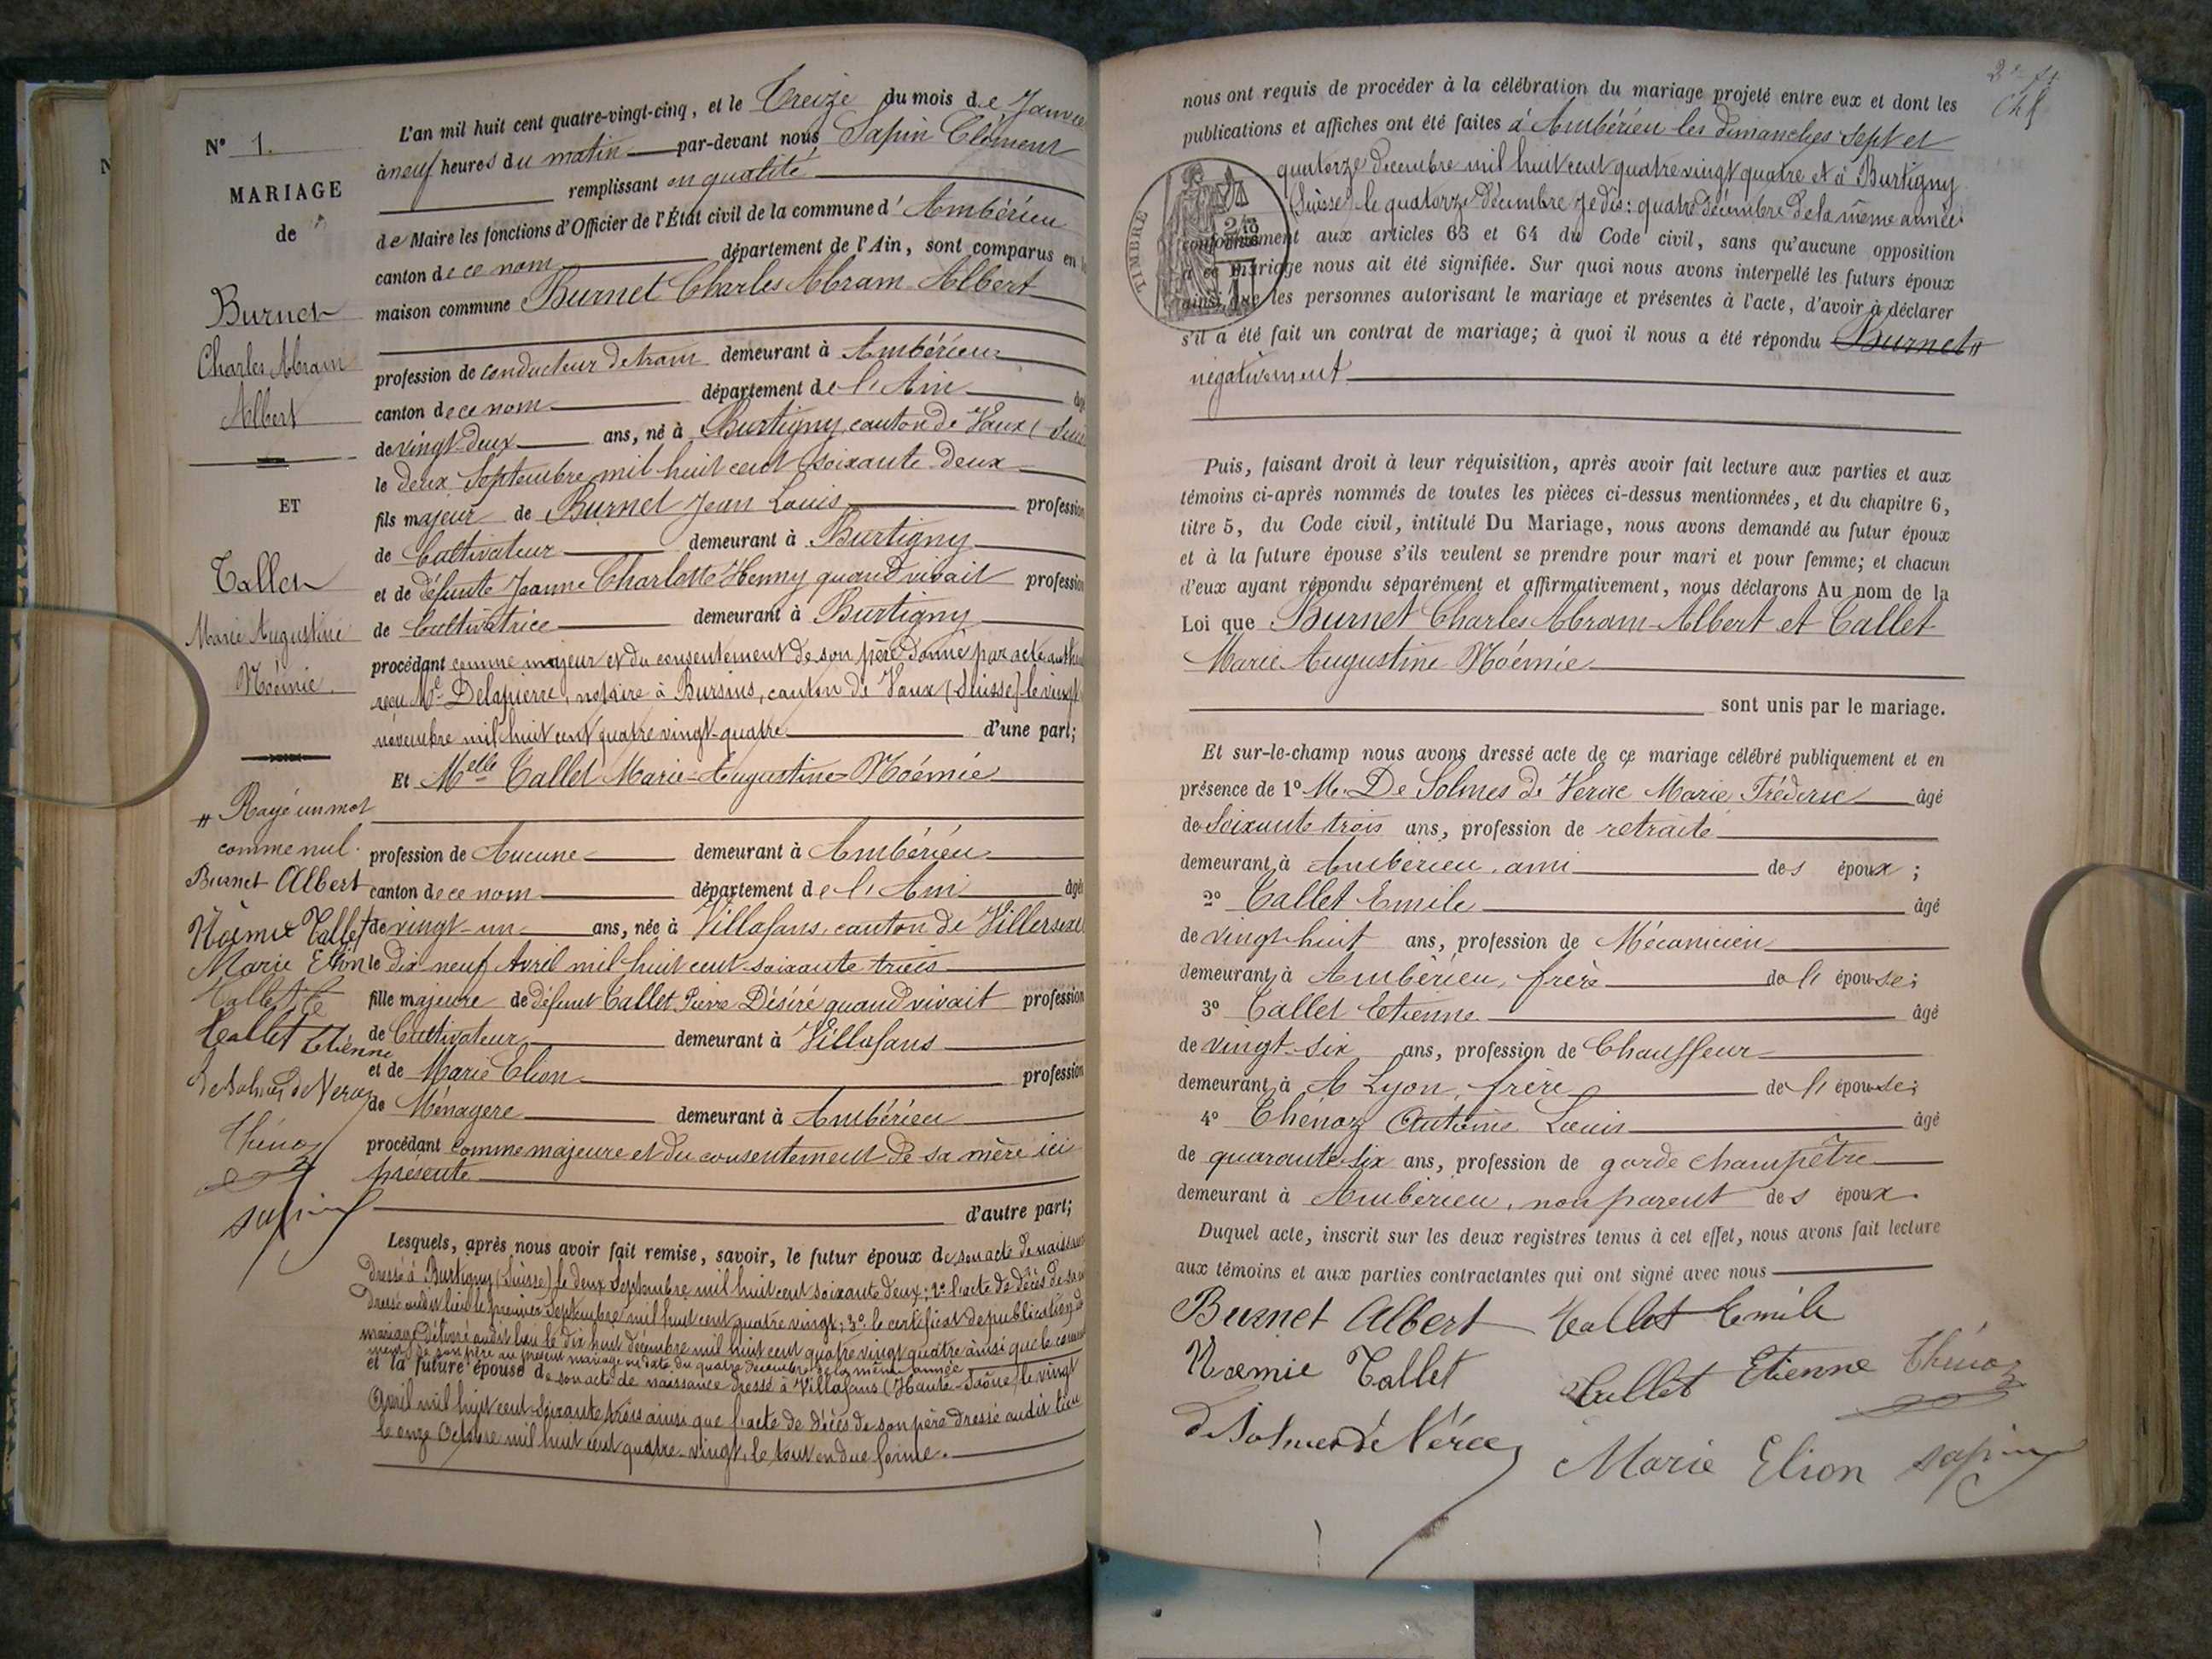 N° 1.
MARIAGE
de
Burnet
Charles Abram
Albert
ET
Tallet
Marie Augustine
Noémie.
〃 Rayé un mot
comme nul.
Burnet Albert
Noémie Tallet
Marie Elion
Tallet E
Tallet Etienne
de Solmes de Verac
Thénoz
Sapin
L'an mil huit cent quatre-vingt-cinq, et le Treize du mois de Janvie
à neuf heures du matin par-devant nous Sapin Clément
remplissant en qualité
de Maire les fonctions d'Officier de l'État civil de la commune d'Ambérieu
canton de ce nom département de l'Ain, sont comparus en
maison commune Burnet Charles Abram Albert
profession de conducteur de tram demeurant à Ambérieu
canton de ce nom département de l'Ain âg
de vingt-deux ans, né à Burtigny, canton de Vaux (Suis
le deux Septembre mil huit cent soixante deux
fils majeur de Burnet Jean Louis profession
de Cultivateur demeurant à Burtigny
et de défunte Jeanne Charlotte Henny quand vivait profession
de Cultivatrice demeurant à Burtigny
procédant comme majeur et du consentement de son père donné par acte auth
reçu Me Delapierre, notaire à Bursins, canton de Vaux (Suisse) le vingt
novembre mil huit cent quatre vingt-quatre d'une part;
Et Melle Tallet Marie-Augustine Noémie
profession de Aucune demeurant à Ambérieu
canton de ce nom département de l'Ain âgé
de vingt-un ans, née à Villafans, canton de Villersexel
le dix neuf Avril mil huit cent soixante trois
fille majeure de défunt Tallet Pierre Désiré quand vivait profession
de Cultivateur demeurant à Villafans
et de Marie Elion profession
de Ménagère demeurant à Ambérieu
procédant comme majeure et du consentement de sa mère ici
présente
d'autre part;
Lesquels, après nous avoir fait remise, savoir, le futur époux de son acte de naissan
dressé à Burtigny (Suisse) le deux Septembre mil huit cent soixante deux; 2° l'acte de décès de sa
dressé audit lieu le premier Septembre mil huit cent quatre vingt; 3° le certificat de publication de
mariage délivré audit lieu le dix huit décembre mil huit cent quatre vingt quatre ainsi que le consente
ment de son père au présent mariage en date du quatre décembre de la même année
et la future épouse de son acte de naissance dressé à Villafans (Haute-Saône) le vingt
Avril mil huit cent soixante trois ainsi que l'acte de décès de son père dressé audit lieu
le onze Octobre mil huit cent quatre-vingt, le tout en due forme.
nous ont requis de procéder à la célébration du mariage projeté entre eux et dont les
publications et affiches ont été faites à Ambérieu les dimanches Sept et
quatorze decembre mil huit cent quatre vingt quatre et à Burtigny
(Suisse) le quatorze décembre je dis: quatre décembre de la même année
TIMBRE
conformément aux articles 63 et 64 du Code civil, sans qu'aucune opposition
à ce mariage nous ait été signifiée. Sur quoi nous avons interpellé les futurs époux
ainsi que les personnes autorisant le mariage et présentes à l'acte, d'avoir à déclarer
s'il a été fait un contrat de mariage; à quoi il nous a été répondu Burnet 〃
négativement
Puis, faisant droit à leur réquisition, après avoir fait lecture aux parties et aux
témoins ci-après nommés de toutes les pièces ci-dessus mentionnées, et du chapitre 6,
titre 5, du Code civil, intitulé Du Mariage, nous avons demandé au futur époux
et à la future épouse s'ils veulent se prendre pour mari et pour femme; et chacun
d'eux ayant répondu séparément et affirmativement, nous déclarons Au nom de la
Loi que Burnet Charles Abram-Albert et Tallet
Marie Augustine Noémie
sont unis par le mariage.
Et sur-le-champ nous avons dressé acte de ce mariage célébré publiquement et en
présence de 1° M. De Solmes de Verac Marie Fréderic âgé
de Soixante trois ans, profession de retraité
demeurant à Ambérieu, ami des époux;
2° Tallet Emile âgé
de vingt-huit ans, profession de Mécanicien
demeurant à Ambérieu, frère de l'épouse;
3° Tallet Etienne âgé
de vingt-six ans, profession de Chauffeur
demeurant à A Lyon, frère de l'épouse;
4° Thénoz Antoine Louis âgé
de quarante-six ans, profession de garde champêtre
demeurant à Ambérieu, non parent des époux.
Duquel acte, inscrit sur les deux registres tenus à cet effet, nous avons fait lecture
aux témoins et aux parties contractantes qui ont signé avec nous
Burnet Albert Tallet Emile
Noemie Tallet Tallet Etienne Thénoz
de Solmes de Vérac Marie Elion Sapin